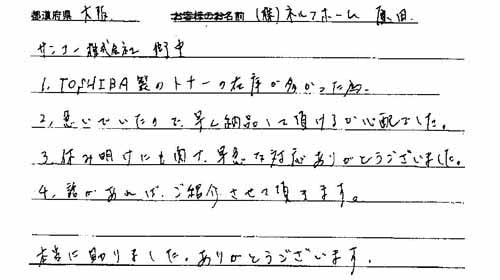 都道府県 大阪 お客様のお名前 (株)ネルフホーム 原田
サンコー株式会社 御中
1, TOSHIBA製のトナーの在庫が多かった為。
2, 急いでいたので、早く納品して頂けるか心配でした。
3, 休み明けにも関ず、早急な対応ありがとうございました。
4, 話があれば、ご紹介させて頂きます。
本当に助りました。ありがとうございます。